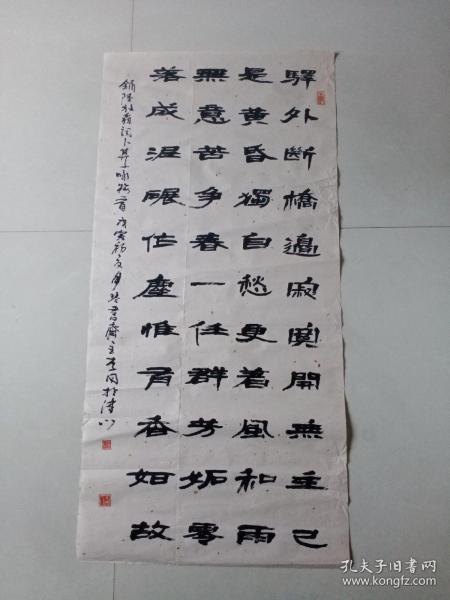 驛外斷橋邊寂寞開無主已
是黄昏獨自愁更着風和雨
無意苦争春一任群芳妬零
落成泥碾作塵惟有香如故
錄陸放翁詞卜算子咏梅一首戊寅初夏月書齋主
孔夫子旧书网
www.kongfz.com